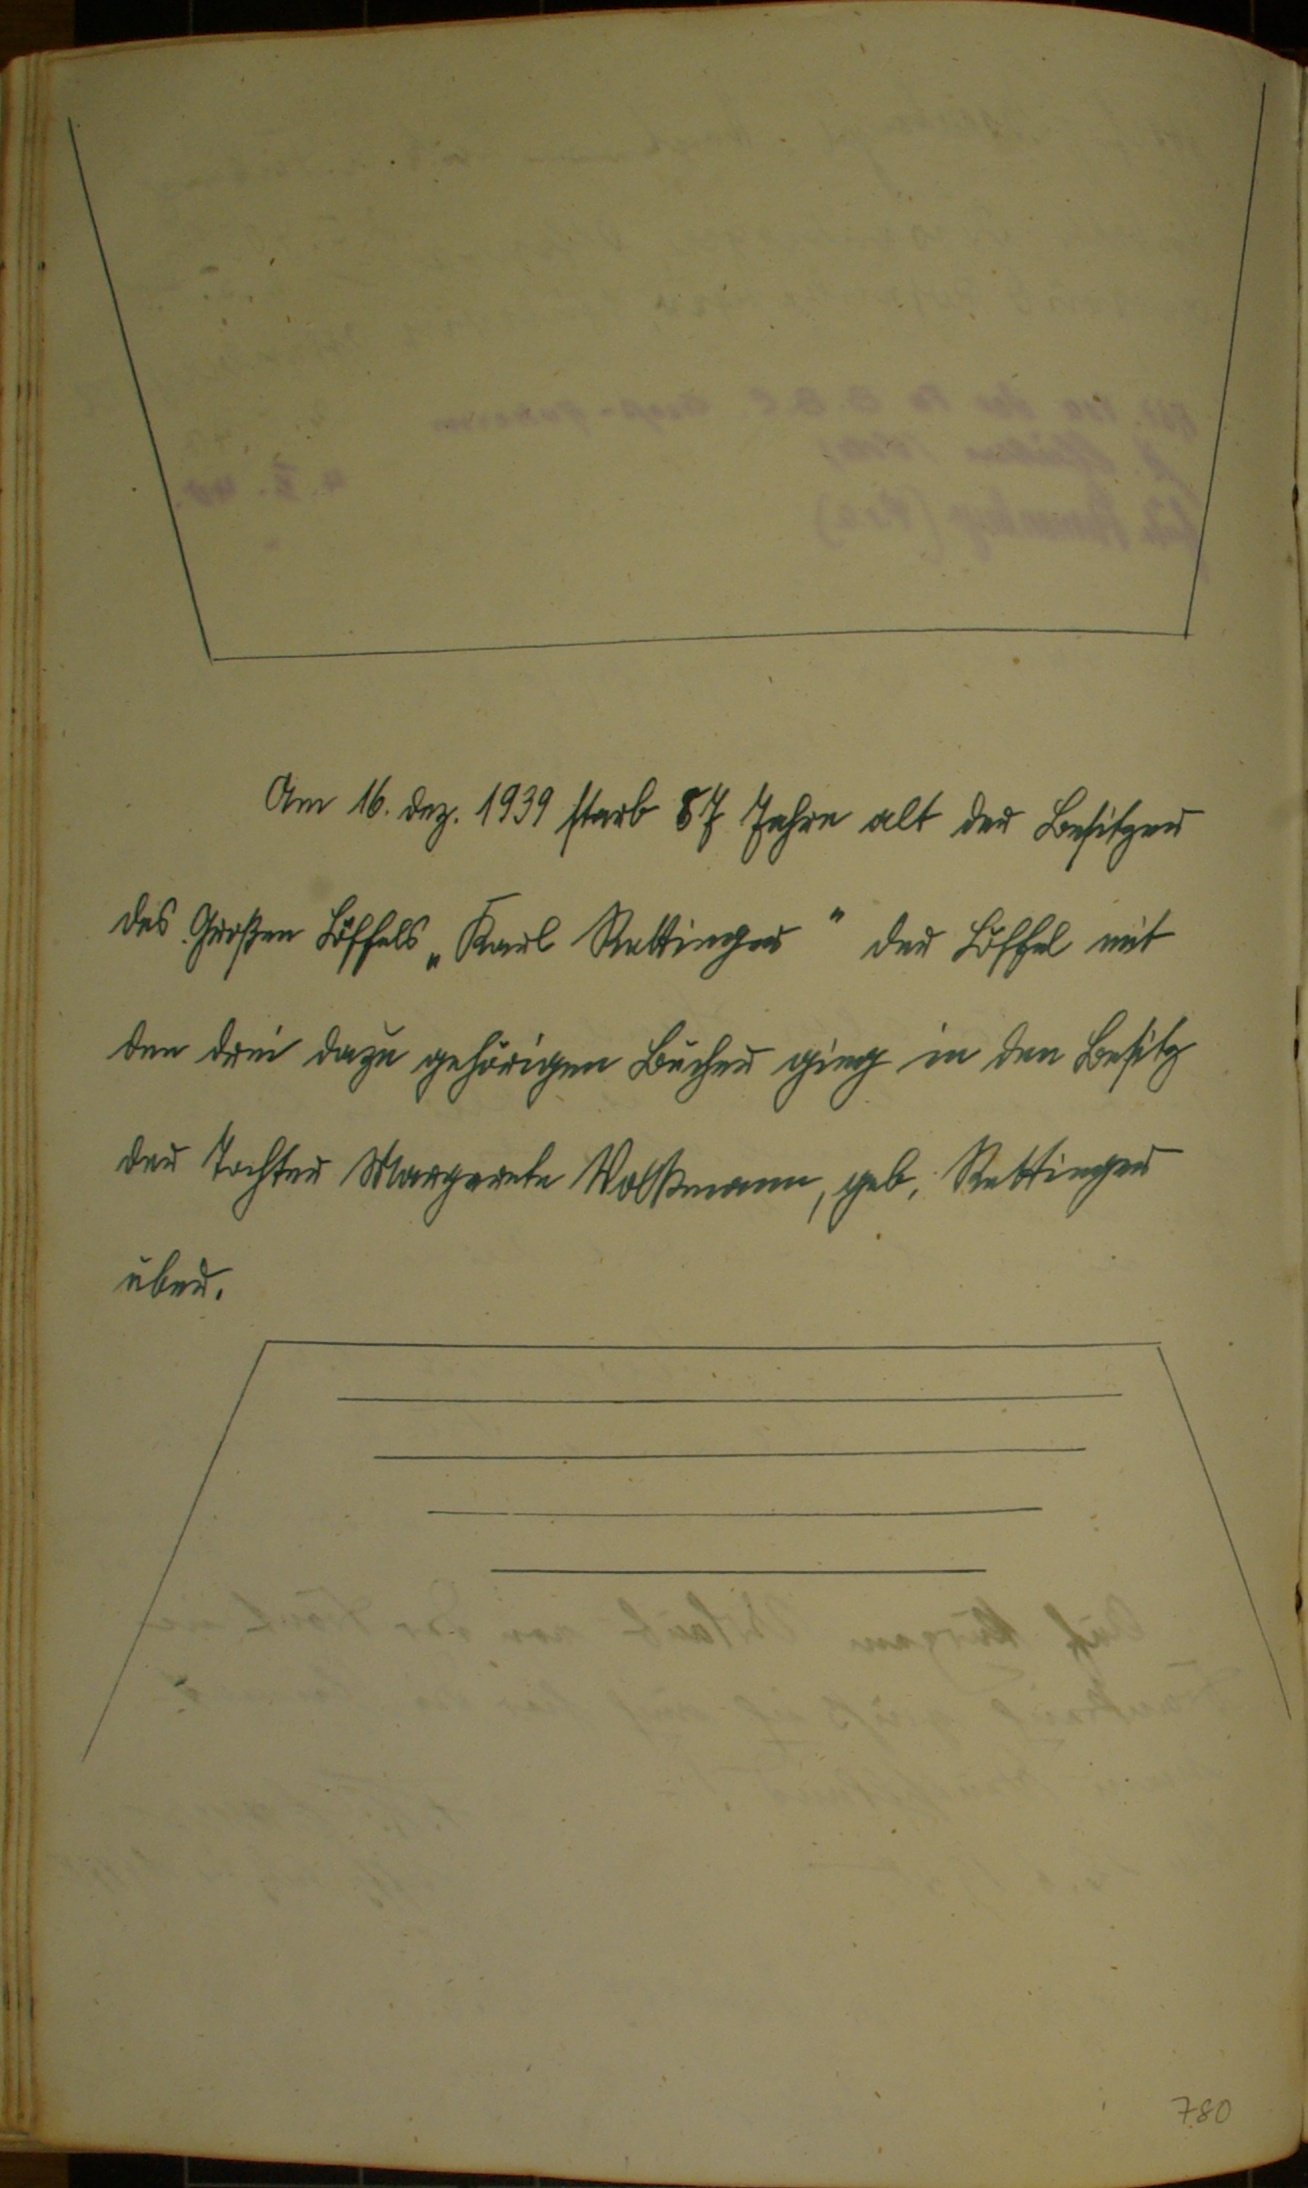 Am 16. Dez. 1939 starb 87 Jahre alt der Besitzer
des Großen Löffels „Karl Rettinger" der Löffel mit
den drei dazu gehörigen Bücher ging in den Besitz
der Tochter Margarete Volkmann, geb. Rettinger
über.
780